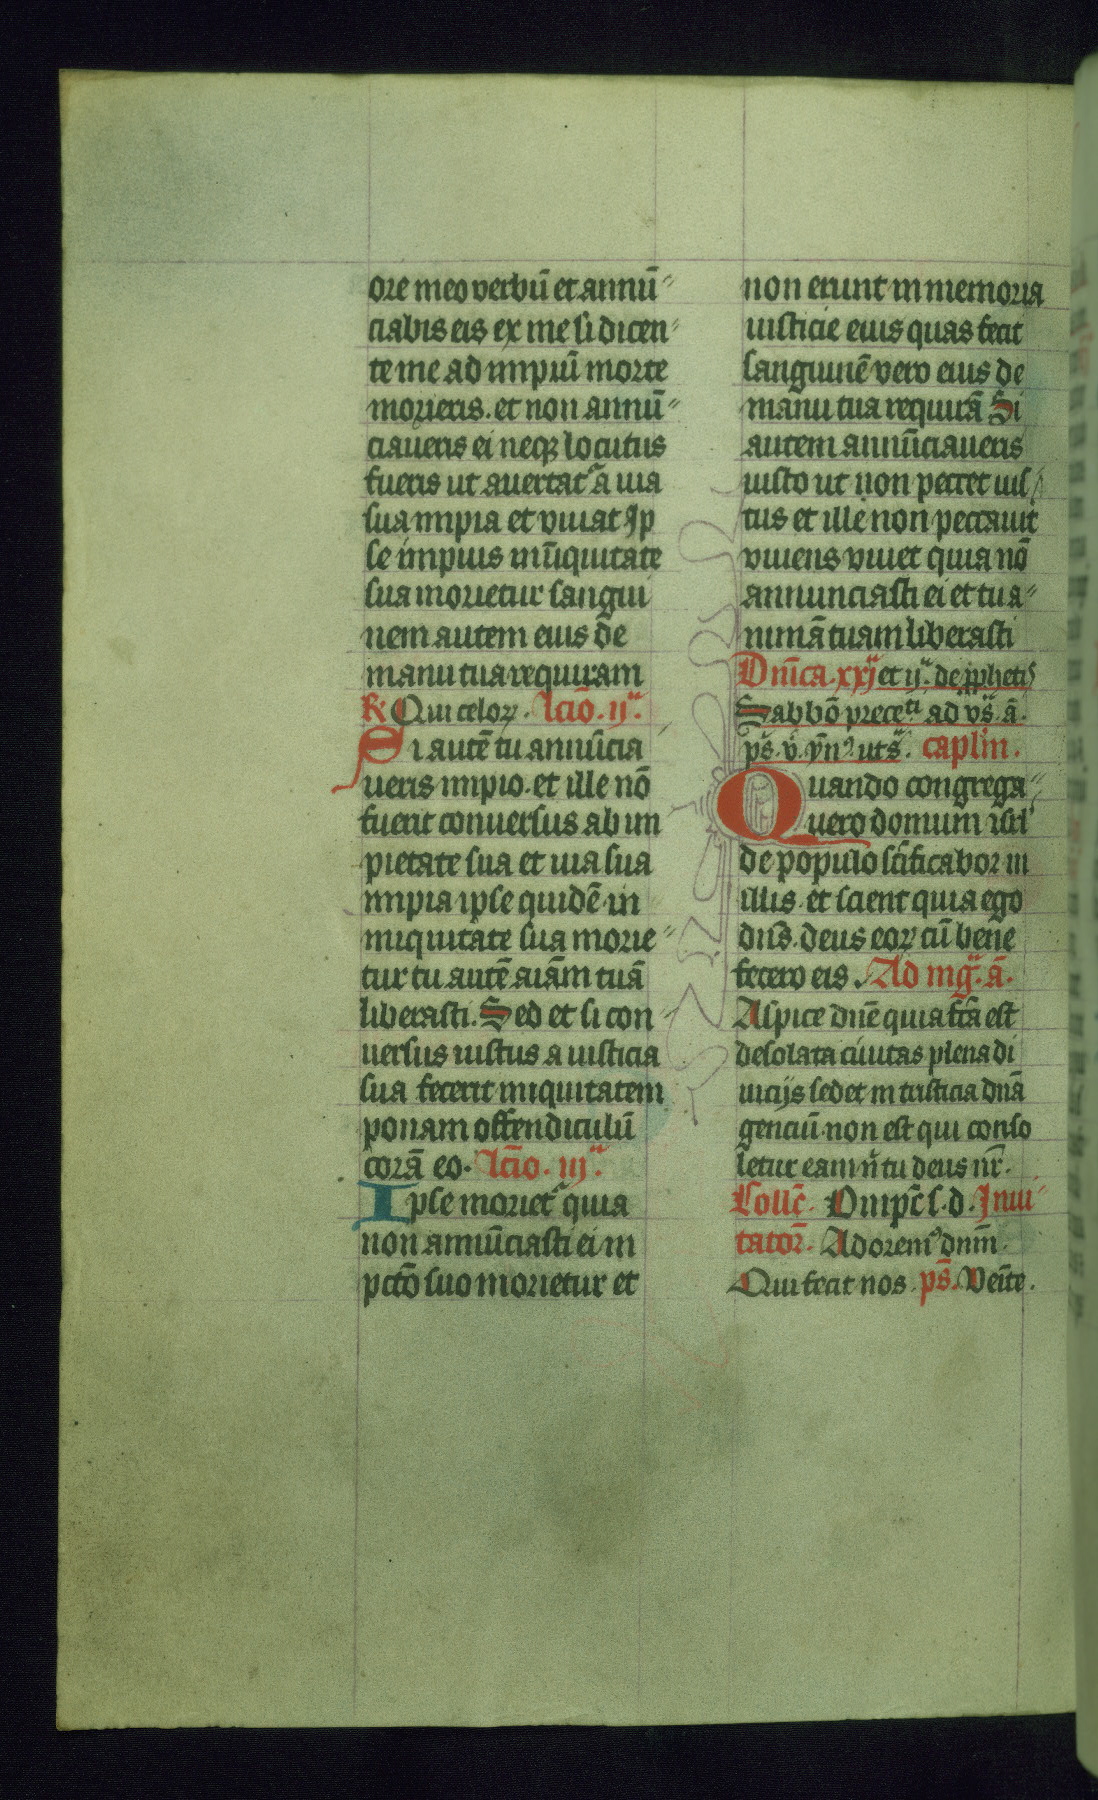 ore meo verbū et annū
ciabis eis ex me si dicen
te me ad impiū morte
morieris. et non annū
ciaueris ei neqꝫ locutus
fueris ut auertat᷑ a uia
sua impia et viuat Ip
se impius in īiquitate
sua morietur sangui
nem autem eius de
manu tua requiram
R Qui celoꝝ. lcīo. ij.
Si autē tu annūcia
ueris impio. et ille nō
fuerit conuersus ab im
pietate sua et uia sua
impia ipse quidē in
iniquitate sua morie
tur tu autē aīam tuā
liberasti. Sed et si con
uersus iustus a iusticia
sua fecerit iniquitatem
ponam offendiculū
corā eo. lcīo. iij.
Ipse moriet᷑ quia
non annūciasti ei in
pctō suo morietur et
non erunt in memoria
iusticie eius quas fecit
sanguinē vero eius de
manu tua requirā Si
autem annūciaueris
iusto ut non peccet ius
tus et ille non peccauit
viuens viuet quia nō
annunciasti ei et tu a
nimā tuam liberasti
Dnīca. xxj et ij. de ꝓphetis
Sabbō prece.ti ad vs̄. ā.
ps̄. v̄. ymꝰ. ut s̄. caplm̄.
Quando congrega
uero domum isrl
de populo sc̄ificabor in
illis. et scient quia ego
dn̄s. deus eoꝝ cū bene
fecero eis. Ad mḡ. ā.
Aspice dn̄e quia fcā est
desolata ciuitas plena di
uicijs sedet in tristicia dn̄a
genciū non est qui conso
letur eam n̄ tu deus nr̄.
Collc̄. Omps̄ s. d. Inui
tator̄. Adoremꝰ dnm̄.
Qui fecit nos. ps̄. Venīte.